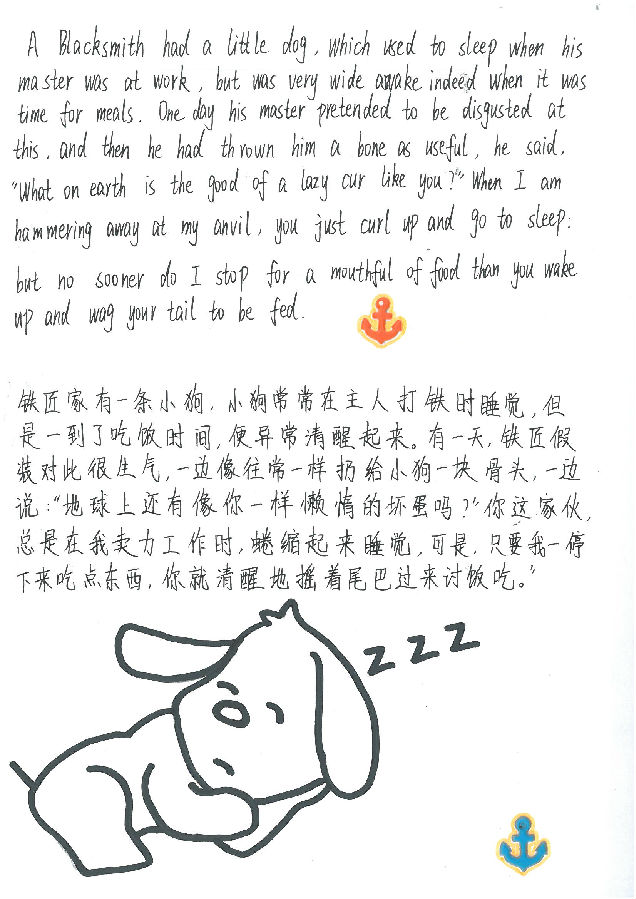 A Blacksmith had a little dog, which used to sleep when his
master was at work, but was very wide awake indeed when it was
time for meals. One day his master pretended to be disgusted at
this, and then he had thrown him a bone as useful, he said,
"What on earth is the good of a lazy cur like you?" When I am
hammering away at my anvil, you just curl up and go to sleep:
but no sooner do I stop for a mouthful of food than you wake
up and wag your tail to be fed.
铁匠家有一条小狗,小狗常常在主人打铁时睡觉,但
是一到了吃饭时间,便异常清醒起来。有一天,铁匠假
装对此很生气,一边像往常一样扔给小狗一块骨头,一边
说:"地球上还有像你一样懒惰的坏蛋吗?"你这家伙,
总是在我卖力工作时,蜷缩起来睡觉,可是,只要我一停
下来吃点东西,你就清醒地摇着尾巴过来讨饭吃。"
z z z